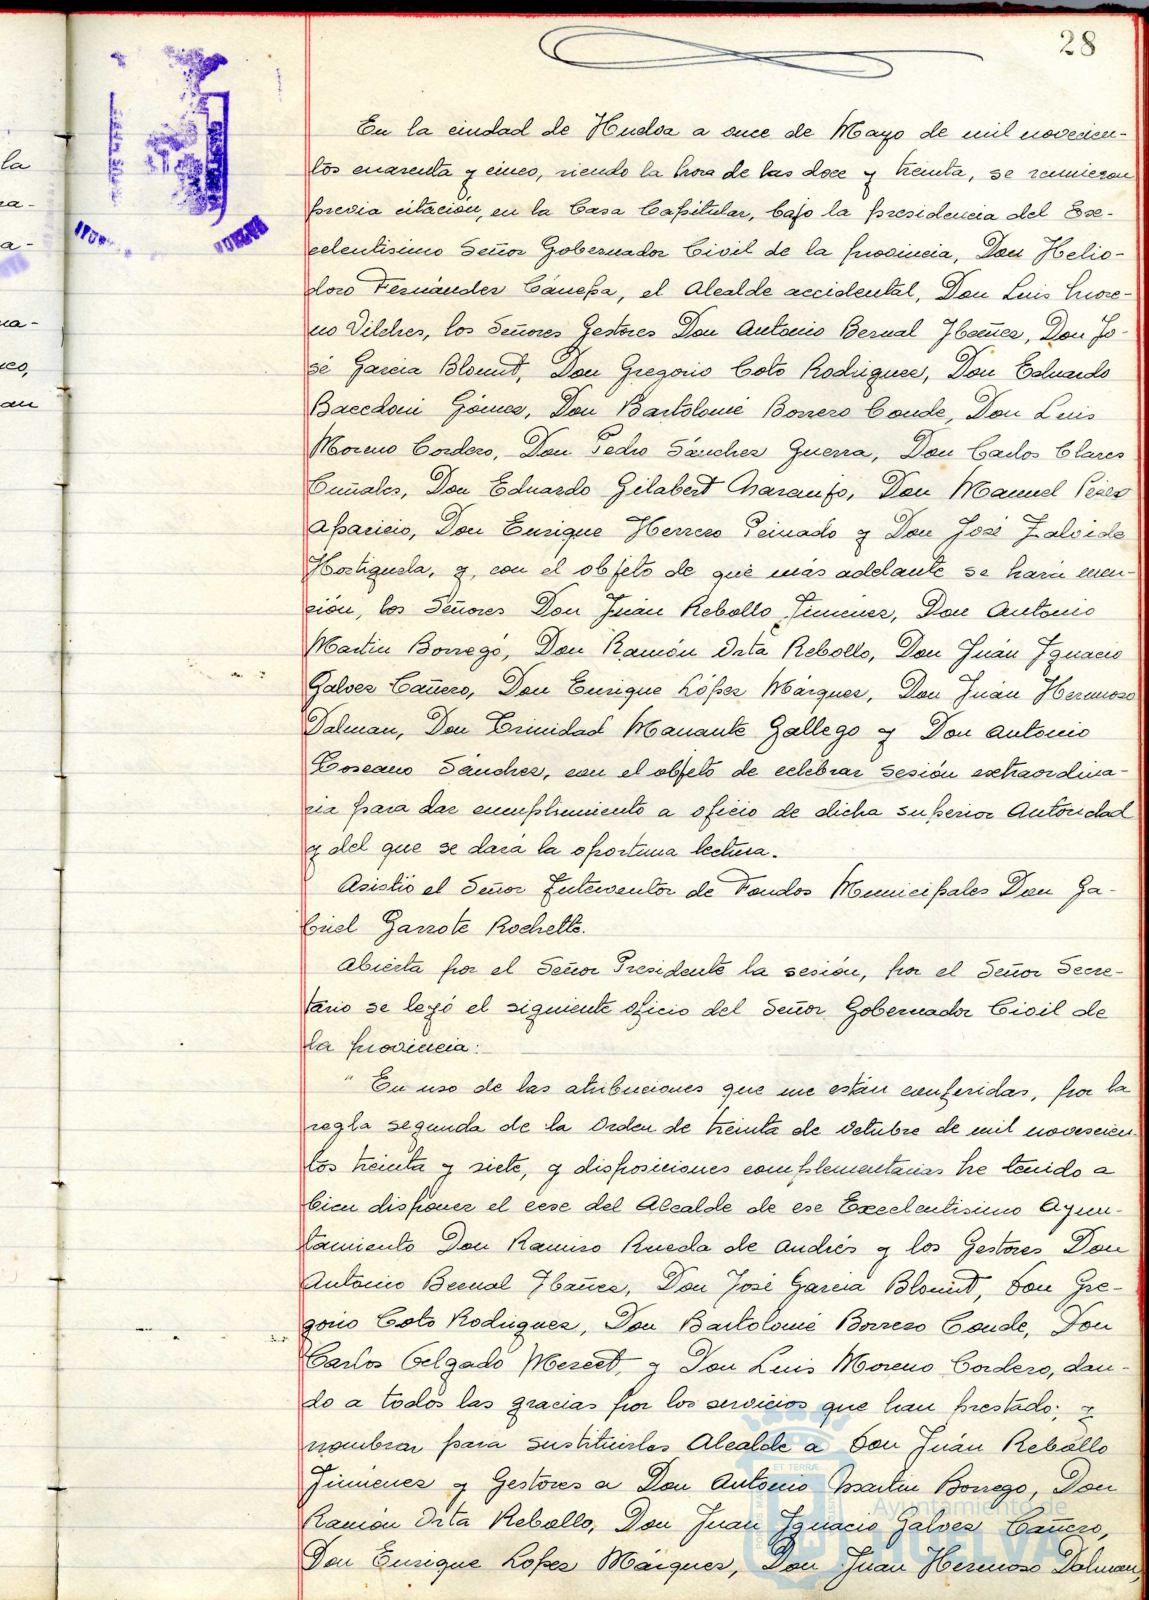 28
En la ciudad de Huelva a once de Mayo de mil novecien-
tos cuarenta y cinco, siendo la hora de las doce y treinta, se reunieron
previa citación, en la Casa Capitular, bajo la presidencia del Exc-
celentisimo Señor Gobernador Civil de la provincia, Don Helio-
doro Fernández Cánepa, el Alcalde accidental, Don Luis More-
no Vilches, los Señores Gestores Don Antonio Bernal Ibañez, Don Jo-
sé Garcia Blount, Don Gregorio Coto Rodriguez, Don Eduardo
Baccdoni Gómez, Don Bartolomé Borrero Conde, Don Luis
Moreno Cordero, Don Pedro Sánchez Guerra, Don Carlos Clares
Cuñales, Don Eduardo Gilabert Naranjo, Don Manuel Perez
Aparicio, Don Enrique Herrero Peinado y Don José Zalvide
Hortiguela, y, con el objeto de que más adelante se hará men-
ción, los Señores Don Juán Rebollo Jimenez, Don Antonio
Martin Borregó, Don Ramón Orta Rebollo, Don Juán Ignacio
Galvez Cañero, Don Enrique López Márquez, Don Juán Hermoso
Dalman, Don Trinidad Manante Gallego y Don Antonio
Toscano Sánchez, con el objeto de celebrar sesión extraordina-
ria para dar cumplimiento a oficio de dicha superior Autoridad
y del que se dará la oportuna lectura.
Asistió el Señor Interventor de Fondos Municipales Don Ga-
briel Garrote Rochette.
Abierta por el Señor Presidente la sesión, por el Señor Secre-
tario se leyó el siguiente oficio del Señor Gobernador Civil de
la provincia:
" En uso de las atribuciones que me están conferidas, por la
regla segunda de la Orden de treinta de Octubre de mil novescien-
tos treinta y siete, y disposiciones complementarias he tenido a
bien disponer el cese del Alcalde de ese Excelentisimo Ayun-
tamiento Don Ramiro Rueda de Andrés y los Gestores Don
Antonio Bernal Ibañez, Don José Garcia Blount, Don Gre-
gorio Coto Rodriguez, Don Bartolomé Borrero Conde, Don
Carlos Gelgado Mercet, y Don Luis Moreno Cordero, dan-
do a todos las gracias por los servicios que han prestado; y
nombrar para sustituirlos Alcalde a Don Juán Rebollo
Jiménez y Gestores a Don Antonio Martin Borrego, Don
Ramón Orta Rebollo, Don Juan Ignacio Galvez Cañero,
Don Enrique Lopez Márquez, Don Juan Hermoso Dalman,
Ayuntamiento de
HUELVA